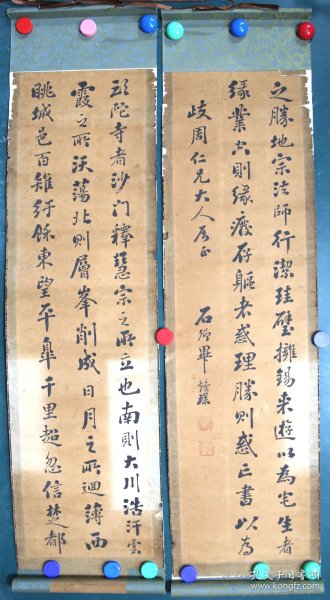 頭陀寺者沙門釋慧宗之所立也南則大川浩汗雲
霞之所沃蕩北則層峯削成日月之所迴薄西
眺城邑百雉紆餘東望平皐千里超忽信楚都
之勝地宗法師行潔珪璧擁錫来遊以為宅生者
緣業空則緣廢存軀者惑理勝則惑亡書以為
岐周仁兄大人屬正
石卿畢
孔夫子旧书网